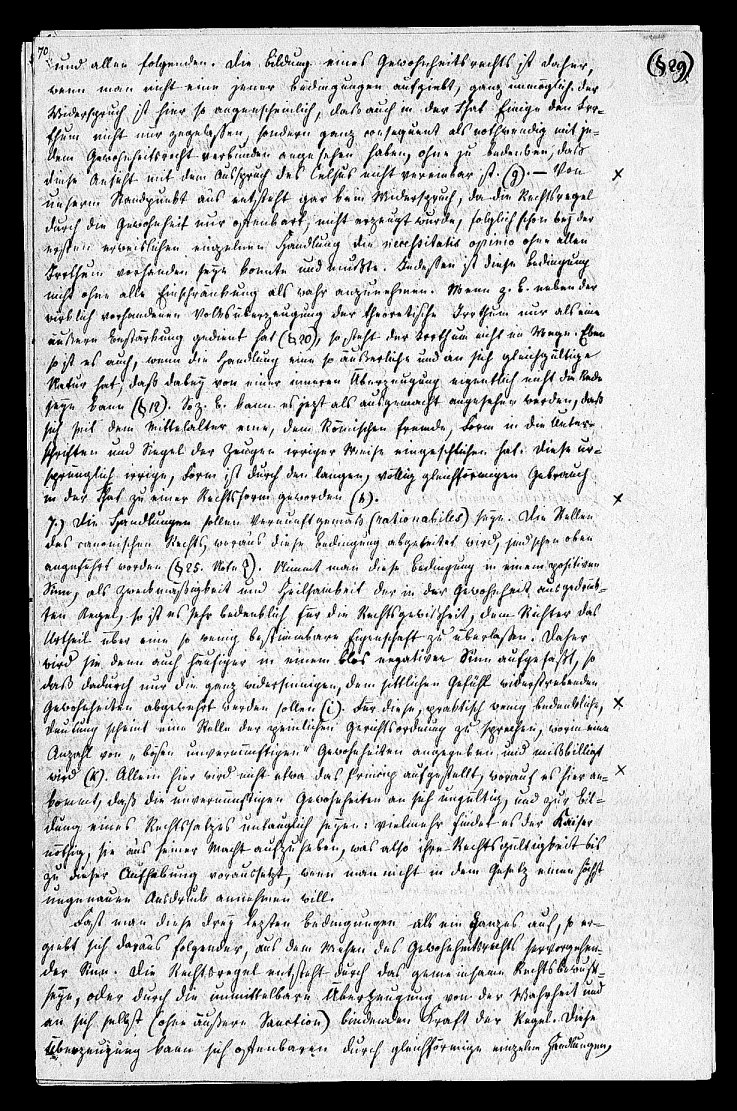 70.
(§ 29)
und allen folgenden. Die Bildung eines Gewohnheitsrechts ist daher,
wenn man nicht eine jener Bedingungen aufgiebt, ganz unmöglich. Der
Widerspruch ist hier so augenscheinlich, daß auch in der That Einige den Irr-
thum nicht nur zugelassen, sondern ganz consequent als nothwendig mit je-
dem Gewohnheitsrecht verbunden angesehen haben, ohne zu bedenken, daß
diese Ansicht mit dem Ausspruch des Celsus nicht vereinbar ist. (g). — Von
unserm Standpunkt aus entsteht gar kein Widerspruch, da die Rechtsregel
durch die Gewohnheit nur offenbart, nicht erzeugt wurde, folglich schon bey der
ersten erweislichen einzelnen Handlung die necessitatis opinio ohne allen
Irrthum vorhanden seyn konnte und mußte. Indessen ist diese Bedingung
nicht ohne alle Einschränkung als wahr anzunehmen. Wenn z. B. neben der
wirklich vorhandenen Volksüberzeugung der theoretische Irrthum nur als eine
äußere Bestärkung gedient hat (§ 20), so steht der Irrthum nicht im Wege. Eben
so ist es auch, wenn die Handlung eine so äußerliche und an sich gleichgültige
Natur hat, daß dabey von einer inneren Überzeugung eigentlich nicht die Rede
seyn kann (§ 12). So z. B. kann es jezt als ausgemacht angesehen werden, daß
sich seit dem Mittelalter eine, dem Römischen fremde, Form in die Unter-
schriften und Siegel der Zeugen irriger Weise eingeschlichen hat. Diese ur-
sprünglich irrige, Form ist durch den langen, völlig gleichförmigen Gebrauch
in der That zu einer Rechtsform geworden (h).
7.) Die Handlungen sollen vernunftgemäß (rationabiles) seyn. Die Stellen
des canonischen Rechts, woraus diese Bedingung abgeleitet wird, sind schon oben
angeführt worden (§ 25. Note). Nimmt man diese Bedingung in einem positiven
Sinn, als Zweckmäßigkeit und Heilsamkeit der in der Gewohnheit ausgedrück-
ten Regel, so ist es sehr bedenklich für die Rechtsgewißheit, dem Richter das
Urtheil über eine so wenig bestimmbare Eigenschaft zu überlassen. Daher
wird sie denn auch häufiger in einem blos negativen Sinn aufgefaßt, so
daß dadurch nur die ganz widersinnigen, dem sittlichen Gefühl widerstrebenden
Gewohnheiten abgewehrt werden sollen (i). Für diese, praktisch wenig bedenkliche,
Deutung scheint eine Stelle der peinlichen Gerichtsordnung zu sprechen, worin eine
Anzahl von „bösen unvernünftigen“ Gewohnheiten angegeben und mißbilligt
wird (k). Allein hier wird nicht etwa das Princip aufgestellt, worauf es hier an-
kommt, daß die unvernünftigen Gewohnheiten an sich ungültig, und zur Bil-
dung eines Rechtssatzes untauglich seyen: vielmehr findet es der Kaiser
nöthig, sie aus seiner Macht aufzuheben, was also ihre Rechtsgültigkeit bis
zu dieser Aufhebung voraussetzt, wenn man nicht in dem Gesetz einen höchst
ungenauen Ausdruck annehmen will.
Faßt man diese drey lezten Bedingungen als ein Ganzes auf, so er-
giebt sich daraus folgender, aus dem Wesen des Gewohnheitsrechts hervorgehen-
der Sinn. Die Rechtsregel entsteht durch das gemeinsame Rechtsbewußt-
seyn, oder durch die unmittelbare Überzeugung von der Wahrheit und
an sich selbst (ohne äußere Sanction) bindenden Kraft der Regel. Diese
Überzeugung kann sich offenbaren durch gleichförmige einzelne Handlungen,